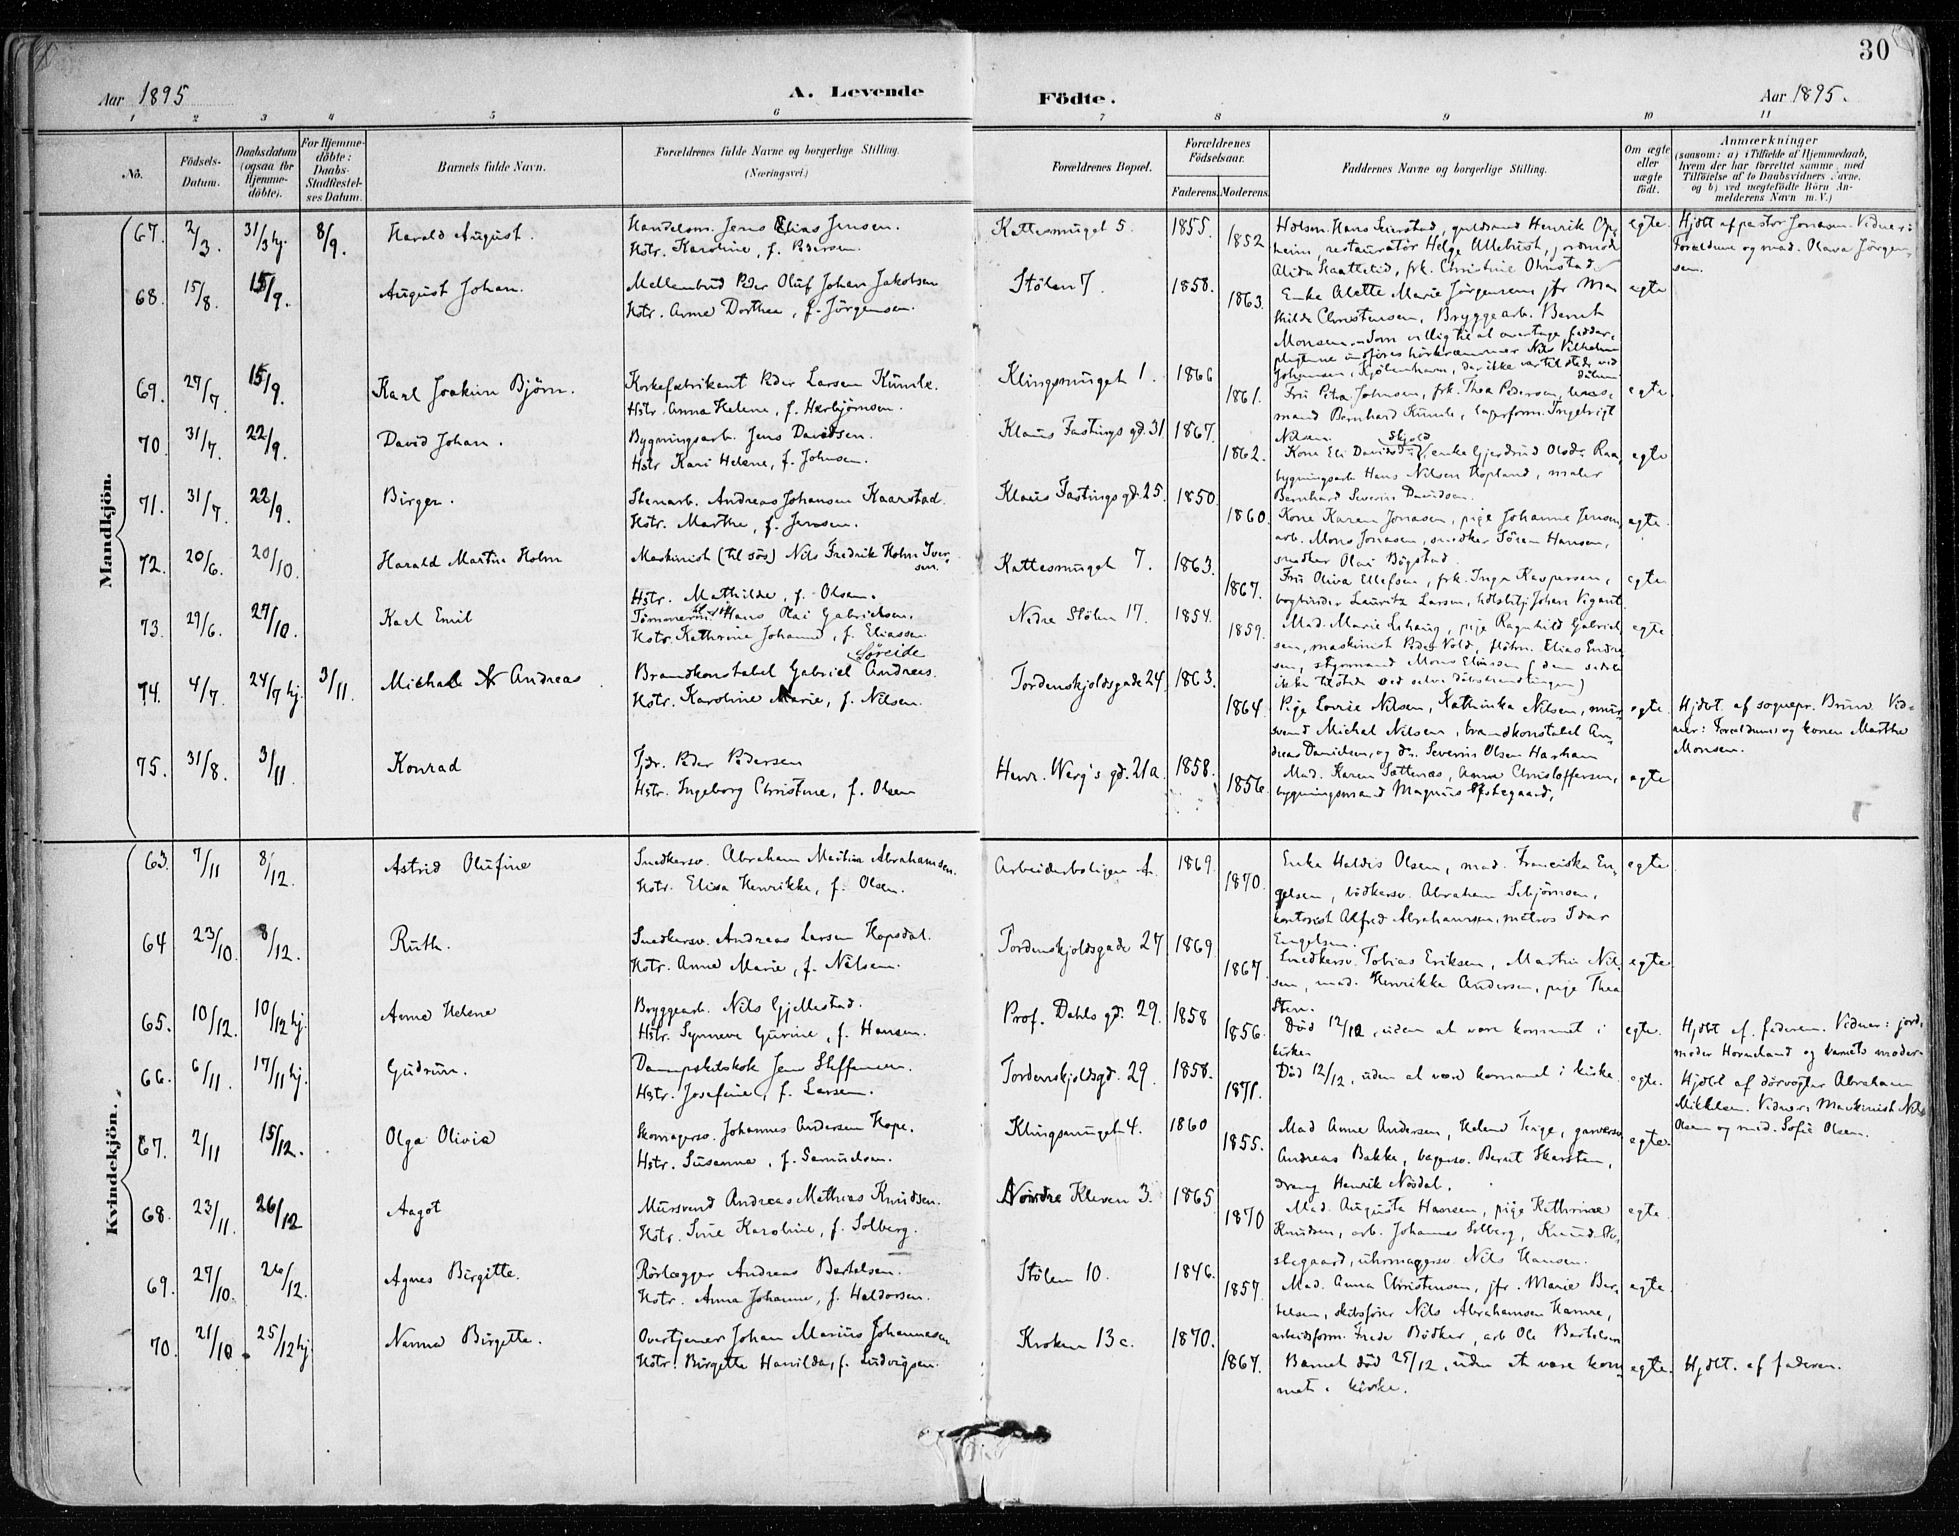 30
Aar 1895 A. Levende Födte. Aar 1895.
1 2 3 4 5 6 7 8 9 10 11
No. Födsels-Datum. Daabsdatum (ogsaa for Hjemmedöbte). For Hjemmedöbte: Daabs-Stadfæstelses Datum. Barnets fulde Navn. Forældrenes fulde Navne og borgerlige Stilling. (Næringsvei.) Forældrenes Bopæl. Forældrenes Födselsaar. Faderens. Moderens. Faddernes Navne og borgerlige Stilling. Om ægte eller uægte födt. Anmærkninger (saasom: a) i Tilfælde af Hjemmedaab, hvem der har forrettet samme, med Tilföielse af to Daabsvidners Navne, og b) ved uægtefödte Börn Anmelderens Navn m. V.)
Mandkjön.
67. 2/3. 31/3 hj. 8/9. Harald August. Handelsm. Jens Elias Jensen. Kattesmuget 5. 1855. egte. Hjdbt af pastor Jonassen. Vidner:
Hstr. Karoline, f. Pedersen. 1852 Forældrene og mad. Olava Jörgensen.
restauratör Helge Ullebust, jordmod.
frk. Christine Ohnstad.
68. 15/8. 15/9. August Johan. Mellembud Peder Oluf Johan Jakobsen Stölen 7. 1858. egte
Hstr. Anne Dorthea, f. Jörgensen. 1863. Enke Alette Marie Jörgensen, jfr Ma-
thilde Christensen, Bryggearb. Bernt
Monsen. Som villig til at overtage fadder-
pligtene indföres Nils Vilhelm
Johansen, Kjöbenhavn, der ikke var tilstede ved
dåben
69. 27/7. 15/9. Karl Joakim Björn. Korkefabrikant Peder Larsen Kunle. Klingsmuget 1. 1866 egte.
Hstr. Anna Helene, f. Herbjörnsen. 1861. Fru Petra Johnsen, frk. Thea Pedersen,
mand Bernhard Kunle, lagerform. Ingebrigt
Nilsen.
70. 31/7. 22/9. David Johan. Bygningsarb. Jens Davidsen. Klaus Fastings gd. 31 1867. egte
Hstr Kari Helene, f. Johnsen. 1862. Kone Eli Davids. Skjold, enke Gjerdrud Olsdr. Raa,
bygningsarb. Hans Nilsen Hopland, maler
Bernhard Severin Davidsen.
71. 31/7. 22/9. Birger. Stenarb. Andreas Johansen Kaarstad. Klaus Fastings gd. 25. 1850. egte.
Hstr. Marthe, f. Jensen. 1860. Kone Karen Jonasen, pige Johanne Jensen,
arb. Mons Jonasen, snedker Sören Hansen,
snedker Olai Bögstad.
72. 20/6. 20/10. Harald Martin Holm Maskinist (til sös) Nils Fredrik Holm Iversen. Kattesmuget 7. 1863. egte.
Hstr. Mathilde, f. Olsen. 1867. Fru Oliva Ellefsen, frk. Inga Kaspersen,
bogbinder Lauritz Larsen, Johan Vigant.
73. 29/6. 27/10. Karl Emil Hans Olai Gabrielsen. Nedre Stölen 17. 1854. egte
Hstr. Kathrine Johanne, f. Eliassen. 1859. Mad. Marie Lihaug, pige Ragnhild Gabriel-
sen, maskinist Peder Vold, Elias Endre-
sen, styrmand Mons Eliasen (den sidste
ikke tilstede ved selve dåbshandlingen)
74. 4/7. 24/7 hj. 3/11. Michael A Andreas. Brandkonstabel Gabriel Andreas Söreide Tordenskjoldsgade 24. 1863. egte.
Hstr. Karoline Marie, f. Nilsen. 1864. Pige Lovise Nilsen, Kathinka Nilsen, mur-
svend Michal Nilsen, brandkonstabel An-
dreas Danielsen, og do. Severin Olsen Harham
Hjdbt af sognepr. Brun. Vid-
ner: Forældrene og konen Marthe
Monsen.
75. 31/8. 3/11. Konrad Tjdr. Peder Pedersen Henr. Werg's gd. 21a. 1858. egte
Hstr. Ingeborg Christine, f. Olsen 1856. Mad. Karen Sættenæs, Anna Christoffersen,
bygningsmand Magnus
Kvindekjön.
63. 7/11 8/12. Astrid Olufine Snedkersv. Abraham Martin Abrahamsen. Arbeiderboligen A. 1869. egte.
Hstr. Elisa Henrikke, f. Olsen. 1870. Enke Haldis Olsen, mad. Franciska En-
gelsen, bödkersv. Abraham Sebjörnsen,
kontorist Alfred Abrahamsen, matros Idar
Engelsen.
64 23/10. 8/12. Ruth. Snedkersv. Andreas Larsen Hopsdal. Tordenskjoldsgade 27 1869. egte
Hstr. Anne Marie, f. Nilsen. 1867. Snedkersv. Tobias Eriksen, Martin Nil-
sen, mad. Henrikke Andersen, pige Thea
Sten.
65. 10/12. 10/12 hj. Anna Helene Bryggearb. Nils Gjellestad. Prof. Dahls gd. 29. 1858 egte.
Hstr. Synneve Gurine, f. Hansen. 1856. Död 12/12, uden at være kommet i
kirke.
Hjdbt af faderen. Vidner: jord-
moder Horneland og barnets moder.
66. 6/11. 17/11 hj. Gudrun. Dampskibskok Jens Steffensen. Tordenskjoldsgd. 29. 1858. egte.
Hstr. Josefine, f. Larsen. 1871. Död 12/12, uden at være kommet i kirke.
Hjdbt af dörvogter Abraham
Mikkelsen. Vidner: Maskinist Nils
Olsen og mad. Sofie Olsen.
67. 2/11 15/12. Olga Olivia Skomagersv. Johannes Andersen Hope. Klingsmuget 4. 1860 egte.
Hstr. Susanna, f. Samuelsen. 1855. Mad Anne Andersen, Helene garversv.
Andreas Bakke, bagersv. Bernt Karsten,
dreng Henrik Nosdal.
68. 23/11. 26/12 Aagot Mursvend Andreas Mathias Knudsen. Nordre Kleven 3. 1865 egte.
Hstr. Sine Karoline, f. Solberg. 1870 Mad. Augusta Hansen, pige Kathrine
Knudsen, arb. Johannes Solberg, Knud
uhrmagersv. Nils Hansen.
69. 27/10. 26/12. Agnes Birgitte. Rörlægger Andreas Bertelsen. Stölen 10. 1846. egte.
Hstr. Anna Johanne, f. Haldorsen. 1857. Mad. Anna Christensen, jfr. Marie Ber-
telsen, skibsförer Nils Abrahamsen Hamre,
arbeidsform. Frede Bödker, arb Ole Bertelsen
70. 21/10. 25/12 hj Nanna Birgitte. Overtjener Johan Marius Johannesen Kroken 13c. 1870. egte.
Hstr. Birgitte Hanilda, f. Ludvigsen. 1867. Barnet död 25/12, uden at være kom-
met i kirke.
Hjdbt. af faderen.